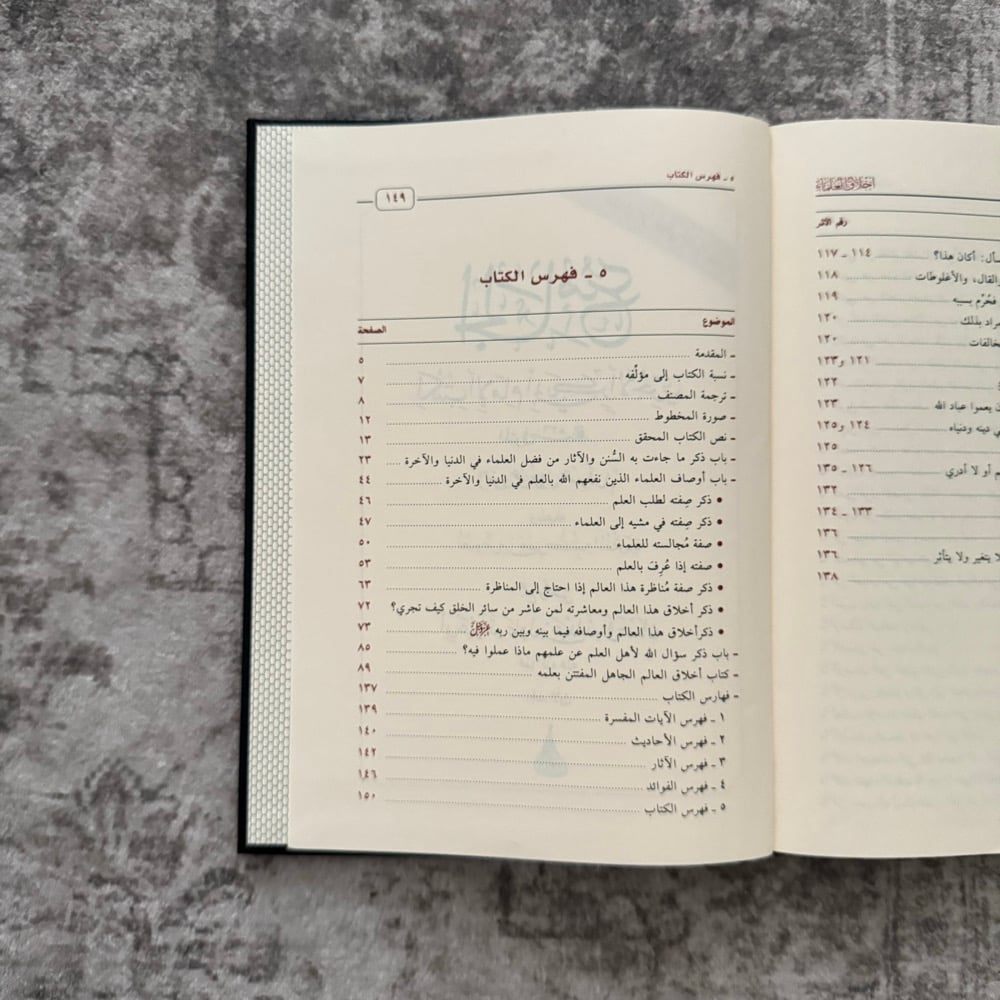 أخلاق العلماء
رقم الأثر
أكان هذا؟ ١١٤ - ١١٧
والأغلوطات ١١٨
فحُرِّم بسببه ١١٩
بذلك ١٢٠
١٢٠
١٢١ و١٢٣
١٢٢
يعموا عباد الله ١٢٣
في دينه ودنياه ١٢٤ و١٢٥
١٢٥
أو لا أدري ١٢٦ - ١٣٥
١٣٢
١٣٣ - ١٣٤
١٣٦
يتغير ولا يتأثر ١٣٦
١٣٨
٥ - فهرس الكتاب
١٤٩
٥ - فهرس الكتاب
الموضوع الصفحة
- المقدمة ٥
- نسبة الكتاب إلى مؤلِّفه ٧
- ترجمة المصنف ٨
- صورة المخطوط ١٢
- نص الكتاب المحقق ١٣
- باب ذكر ما جاءت به السُّنن والآثار من فضل العلماء في الدنيا والآخرة ٢٣
- باب أوصاف العلماء الذين نفعهم الله بالعلم في الدنيا والآخرة ٤٤
• ذكر صِفته لطلب العلم ٤٦
• ذكر صِفته في مشيه إلى العلماء ٤٧
• صفة مُجالسته للعلماء ٥٠
• صفته إذا عُرِفَ بالعلم ٥٣
• ذكر صفة مُناظرة هذا العالم إذا احتاج إلى المناظرة ٦٣
• ذكر أخلاق هذا العالم ومعاشرته لمن عاشر من سائر الخلق كيف تجري؟ ٧٢
• ذكر أخلاق هذا العالم وأوصافه فيما بينه وبين ربه ٧٣
- باب ذكر سؤال الله لأهل العلم عن علمهم ماذا عملوا فيه؟ ٨٥
- كتاب أخلاق العالم الجاهل المفتتن بعلمه ٨٩
- فهارس الكتاب ١٣٧
١ - فهرس الآيات المفسرة ١٣٩
٢ - فهرس الأحاديث ١٤٠
٣ - فهرس الآثار ١٤٢
٤ - فهرس الفوائد ١٤٦
٥ - فهرس الكتاب ١٥٠